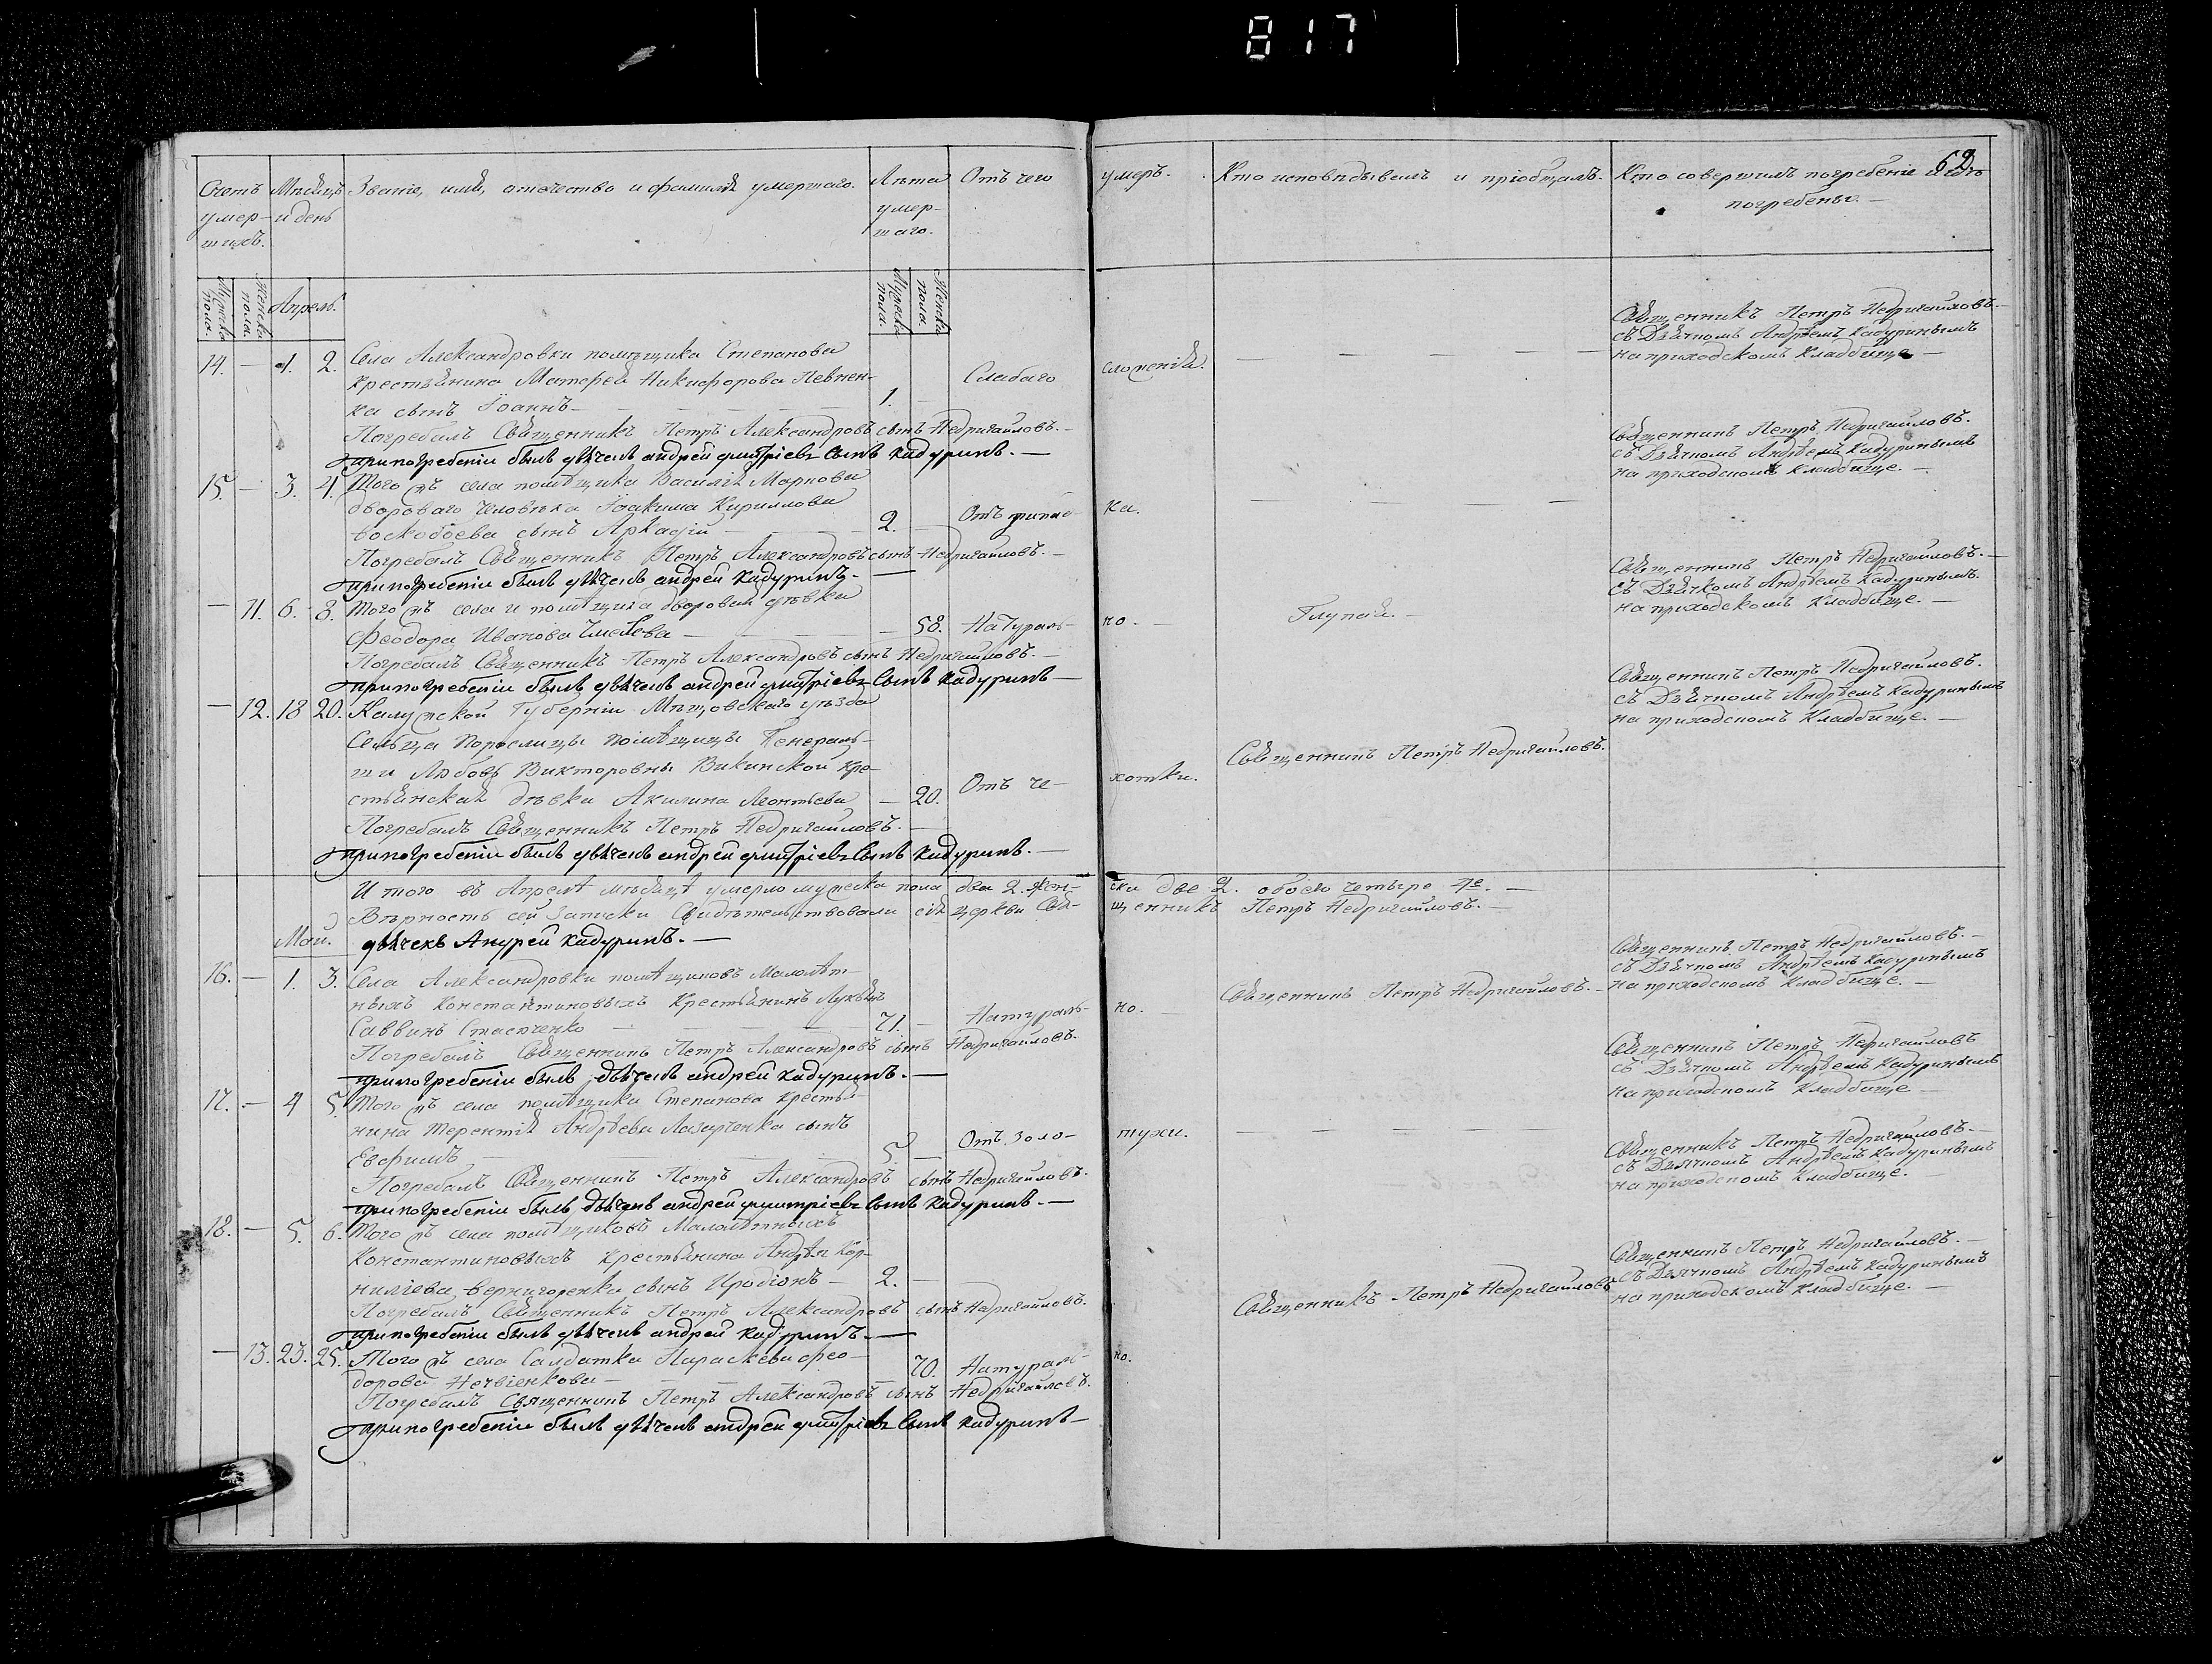 817
62
Счетъ умер-шихъ.
Мѣсяцъ и день
Званіе, имя, отечество и фамилія умершаго.
Лѣта умер-шаго.
Отъ чего умеръ.
Кто исповѣдывалъ и пріобщалъ.
Кто совершилъ погребеніе и гдѣ погребены.
Мужеска пола.
Женска пола.
Апрель.
Мужеска пола.
Женска пола.
14. — 1. 2. Села Александровки помѣщика Степанова
крестьянина Матфея Никифорова Певнен-
ка сынъ Іоаннъ — 1. — Слабаго сложенія.
Священникъ Петръ Недригайловъ.
съ Дьячкомъ Андреемъ Кадуринымъ
на приходскомъ кладбище —
Погребалъ Священникъ Петръ Александровъ сынъ Недригайловъ. —
при погребеніи былъ дьячекъ андрей дмитріевъ сынъ кадуринъ. —
15. — 3. 4. Того жъ села помѣщика Василія Маркова
двороваго человѣка Іоакима Кириллова
воскобоева сынъ Аркадій — 2. — Отъ ка.
Священникъ Петръ Недригайловъ.
съ Дьячкомъ Андреемъ Кадуринымъ
на приходскомъ кладбище. —
Погребалъ Священникъ Петръ Александровъ сынъ Недригайловъ. —
при погребеніи былъ дьячекъ андрей кадуринъ. —
— 11. 6. 8. Того жъ села и помѣщика дворовая дѣвка
Феодора Иванова — 58. Натураль-но. — Глупая. —
Священникъ Петръ Недригайловъ. —
съ Дьячкомъ Андреемъ Кадуринымъ.
на приходскомъ кладбище. —
Погребалъ Священникъ Петръ Александровъ сынъ Недригайловъ. —
при погребеніи былъ дьячекъ андрей дмитріевъ сынъ кадуринъ —
— 12. 18 20. Калужской Губерніи Мещовскаго уѣзда
Сельца помѣщицы Генераль-
ши Любовь Викторовны Викинской кре-
стьянская дѣвка Акилина Леонтьева — 20. Отъ че-хотки.
Священникъ Петръ Недригайловъ.
Священникъ Петръ Недригайловъ.
съ Дьячкомъ Андреемъ Кадуринымъ
на приходскомъ кладбище. —
Погребалъ Священникъ Петръ Недригайловъ. —
при погребеніи былъ дьячекъ андрей дмитріевъ сынъ кадуринъ. —
Итого въ Апрелѣ мѣсяцѣ умерло мужеска пола два 2. жен-ска две 2. обоего четыре 4е. —
Вѣрность сей Записки Свидѣтельствовали сія церкви Свя-щенникъ Петръ Недригайловъ. —
дьячекъ Андрей кадуринъ. —
Май.
16. — 1. 3. Села Александровки помѣщиковъ Малолѣт-
ныхъ Константиновыхъ Крестьянинъ Лукьянъ
Саввинъ Стасюченко — 71. — Натураль-но.
Священникъ Петръ Недригайловъ. —
Священникъ Петръ Недригайловъ. —
съ Дьячкомъ Андреемъ Кадуринымъ
на приходскомъ кладбище. —
Погребалъ Священникъ Петръ Александровъ сынъ Недригайловъ.
при погребеніи былъ дьячекъ андрей кадуринъ. —
17. — 4 5. Того жъ села помѣщика Степанова крестья-
нина Терентія Андреева Лазарченка сынъ
Евфимъ — 5. — Отъ золо-тухи.
Священникъ Петръ Недригайловъ
съ Дьячкомъ Андреемъ Кадуринымъ
на приходскомъ кладбище —
Погребалъ Священникъ Петръ Александровъ сынъ Недригайловъ.
при погребеніи былъ дьячекъ андрей дмитріевъ сынъ кадуринъ. —
18. — 5. 6. Того жъ села помѣщиковъ Малолѣтныхъ
Константиновыхъ крестьянина Андрея Кор-
ниліева Вернигоренка сынъ Иродіонъ — 2. —
Священникъ Петръ Недригайловъ. —
съ Дьячкомъ Андреемъ Кадуринымъ
на приходскомъ кладбище. —
Погребалъ Священникъ Петръ Александровъ сынъ Недригайловъ.
при погребеніи былъ дьячекъ андрей кадуринъ. —
— 13. 23. 25. Того жъ села Салдатка Параскева Фео-
дорова — 70. Натураль-но.
Священникъ Петръ Недригайловъ
Священникъ Петръ Недригайловъ. —
съ Дьячкомъ Андреемъ Кадуринымъ
на приходскомъ кладбище. —
Погребалъ Священникъ Петръ Александровъ сынъ Недригайловъ.
при погребеніи былъ дьячекъ андрей дмитріевъ сынъ кадуринъ —